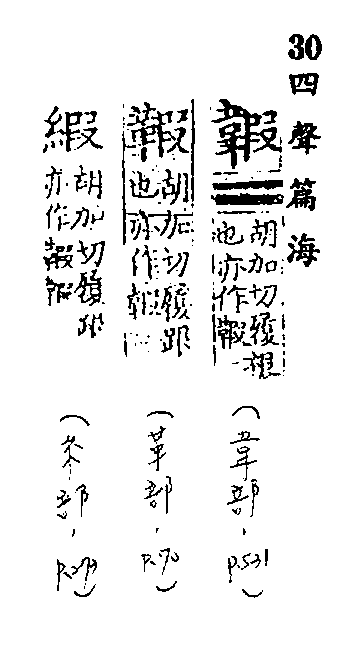 30四聲篇海
韋叚
胡加切履根
也亦作
革叚
胡加切履跟
也亦作
緞
胡加切履跟
亦作
(韋部,P.531)
(革部,P.70)
(糸部,P.273)